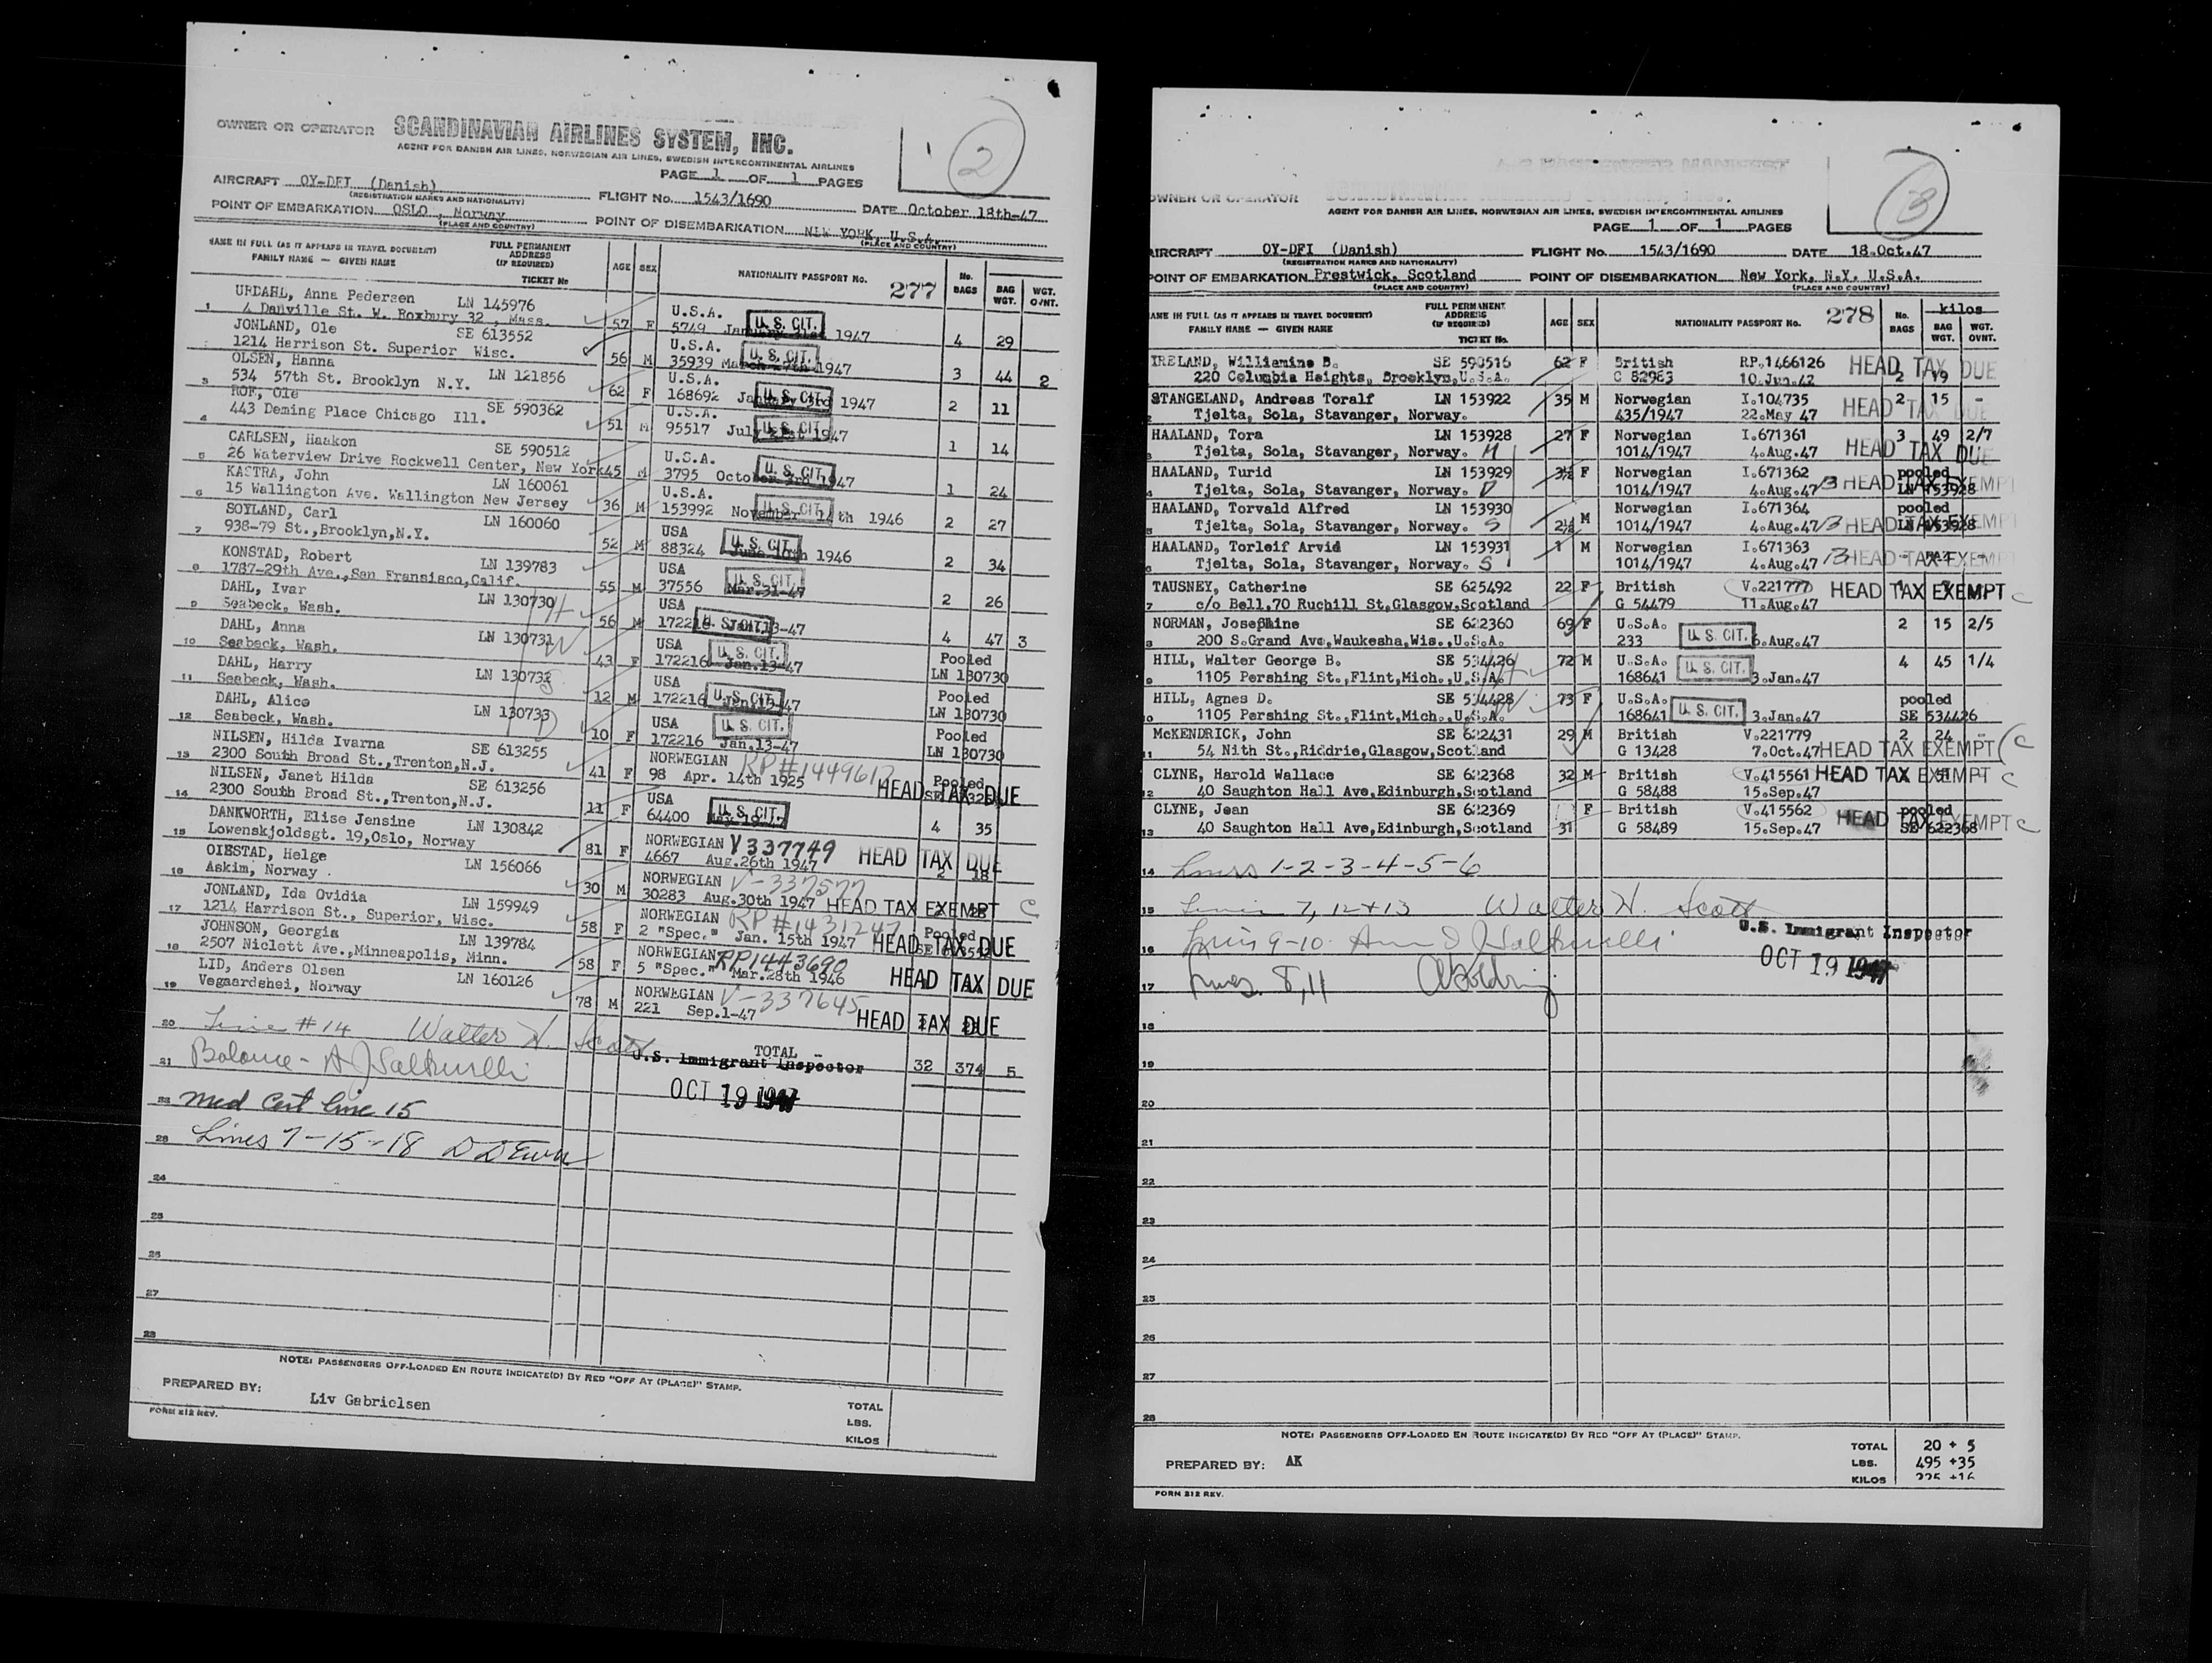 2
OWNER OR OPERATOR SCANDINAVIAN AIRLINES SYSTEM, INC.
AGENT FOR DANISH AIR LINES, NORWEGIAN AIR LINES, SWEDISH INTERCONTINENTAL AIRLINES
PAGE 1 OF 1 PAGES
AIRCRAFT OY-DFI (Danish) FLIGHT No. 1543/1690 DATE October 18th-47
(REGISTRATION MARKS AND NATIONALITY)
POINT OF EMBARKATION OSLO, Norway POINT OF DISEMBARKATION NEW YORK, U.S.A.
(PLACE AND COUNTRY) (PLACE AND COUNTRY)
NAME IN FULL (AS IT APPEARS IN TRAVEL DOCUMENT) FULL PERMANENT ADDRESS (IF REQUIRED) AGE SEX NATIONALITY PASSPORT No. 277 No. BAGS BAG WGT. WGT. OVNT.
FAMILY NAME — GIVEN NAME TICKET No
URDAHL, Anna Pedersen LN 145976 U.S.A. U. S. CIT.
1 4 Danville St. W. Roxbury 32, Mass. 57 F 5749 1947 4 29
JONLAND, Ole SE 613552 U.S.A. U. S. CIT.
1214 Harrison St. Superior Wisc. 56 M 35939 1947 3 44 2
OLSEN, Hanna LN 121856 U.S.A. U. S. CIT.
3 534 57th St. Brooklyn N.Y. 62 F 168692 January 3rd 1947 2 11
ROE, Ole SE 590362 U.S.A. U. S. CIT.
4 443 Deming Place Chicago Ill. 51 M 95517 July 1947 1 14
CARLSEN, Haakon SE 590512 U.S.A. U. S. CIT.
5 26 Waterview Drive Rockwell Center, New York 45 M 3795 October 3rd 1947 1 24
KASTRA, John LN 160061 U.S.A. U. S. CIT.
6 15 Wallington Ave. Wallington New Jersey 36 M 153992 November 14th 1946 2 27
SOYLAND, Carl LN 160060 USA U. S. CIT.
7 938-79 St.,Brooklyn,N.Y. 52 M 88324 June 10th 1946 2 34
KONSTAD, Robert LN 139783 USA U. S. CIT.
8 1787-29th Ave.,San Fransisco,Calif. 55 M 37556 Mar.31-47 2 26
DAHL, Ivar LN 130730 H USA U. S. CIT.
9 Seabeck, Wash. 56 M 172216 Jan.13-47 4 47 3
DAHL, Anna LN 130731 W USA U. S. CIT. Pooled
10 Seabeck, Wash. 43 F 172216 Jan.13-47 LN 130730
DAHL, Harry LN 130732 S USA U. S. CIT. Pooled
11 Seabeck, Wash. 12 M 172216 Jan.13-47 LN 130730
DAHL, Alice LN 130733 D USA U. S. CIT. Pooled
12 Seabeck, Wash. 10 F 172216 Jan.13-47 LN 130730
NILSEN, Hilda Ivarna SE 613255 NORWEGIAN Pooled
13 2300 South Broad St.,Trenton,N.J. 41 F 98 Apr. 14th 1925 HEAD TAX DUE
NILSEN, Janet Hilda SE 613256 USA U. S. CIT.
14 2300 South Broad St.,Trenton,N.J. 11 F 64400 May.19-47 4 35
DANKWORTH, Elise Jensine LN 130842 NORWEGIAN V337749
15 Lowenskjoldsgt. 19,Oslo, Norway 81 F 4667 Aug.26th 1947 HEAD TAX DUE 2 18
OIESTAD, Helge LN 156066 NORWEGIAN V-337577
16 Askim, Norway 30 M 30283 Aug.30th 1947 HEAD TAX EXEMPT C
JONLAND, Ida Ovidia LN 159949 NORWEGIAN RP#1431247 Pooled
17 1214 Harrison St., Superior, Wisc. 58 F 2 "Spec." Jan. 15th 1947 HEAD TAX DUE
JOHNSON, Georgia LN 139784 NORWEGIAN RP1443690
18 2507 Niclett Ave.,Minneapolis, Minn. 58 F 5 "Spec." Mar.28th 1946 HEAD TAX DUE
LID, Anders Olsen LN 160126 NORWEGIAN V-337645
19 Vegaardshei, Norway 78 M 221 Sep.1-47 HEAD TAX DUE
20 Line #14 Walter H. Scott TOTAL –
U.S. Immigrant Inspector 32 374 5
21 Balance -
OCT 19 1947
22 Med Cert line 15
23 Lines 7-15-18
24
25
26
27
28
NOTE: PASSENGERS OFF-LOADED EN ROUTE INDICATE(D) BY RED "OFF AT (PLACE)" STAMP.
PREPARED BY: Liv Gabrielsen
TOTAL
LBS.
KILOS
FORM 212 REV.
3
OWNER OR OPERATOR
AGENT FOR DANISH AIR LINES, NORWEGIAN AIR LINES, SWEDISH INTERCONTINENTAL AIRLINES
PAGE 1 OF 1 PAGES
AIRCRAFT OY-DFI (Danish) FLIGHT No. 1543/1690 DATE 18.Oct.47
(REGISTRATION MARKS AND NATIONALITY)
POINT OF EMBARKATION Prestwick, Scotland POINT OF DISEMBARKATION New York, N.Y. U.S.A.
(PLACE AND COUNTRY) (PLACE AND COUNTRY)
NAME IN FULL (AS IT APPEARS IN TRAVEL DOCUMENT) FULL PERMANENT ADDRESS (IF REQUIRED) AGE SEX NATIONALITY PASSPORT No. 278 No. BAGS kilos BAG WGT. WGT. OVNT.
FAMILY NAME — GIVEN NAME TICKET No.
IRELAND, Williamine B. SE 590516 62 F British RP.1466126 HEAD TAX DUE
220 Columbia Heights, Brooklyn,U.S.A. C 82963 10.Jun.42 2 19
STANGELAND, Andreas Toralf LN 153922 35 M Norwegian I.104735 2 15 -
2 Tjelta, Sola, Stavanger, Norway. 435/1947 22.May 47 HEAD TAX DUE
HAALAND, Tora LN 153928 27 F Norwegian I.671361 3 49 2/7
3 Tjelta, Sola, Stavanger, Norway. M 1014/1947 4.Aug.47 HEAD TAX DUE
HAALAND, Turid LN 153929 3½ F Norwegian I.671362 pooled
4 Tjelta, Sola, Stavanger, Norway. D 1014/1947 4.Aug.47 B HEAD TAX EXEMPT LN 153928
HAALAND, Torvald Alfred LN 153930 M Norwegian I.671364 pooled
5 Tjelta, Sola, Stavanger, Norway. S 2½ 1014/1947 4.Aug.47 B HEAD TAX EXEMPT LN 153928
HAALAND, Torleif Arvid LN 153931 1 M Norwegian I.671363
6 Tjelta, Sola, Stavanger, Norway. S 1014/1947 4.Aug.47 B HEAD TAX EXEMPT
TAUSNEY, Catherine SE 625492 22 F British V.221777 HEAD TAX EXEMPT C
7 c/o Bell,70 Ruchill St,Glasgow,Scotland G 54479 11.Aug.47
NORMAN, Josephine SE 622360 69 F U.S.A. 2 15 2/5
8 200 S.Grand Ave,Waukesha,Wis.,U.S.A. 233 U. S. CIT. 6.Aug.47
HILL, Walter George B. SE 534426 H 72 M U.S.A. U. S. CIT. 4 45 1/4
9 1105 Pershing St.,Flint,Mich.,U.S.A. 168641 3.Jan.47
HILL, Agnes D. SE 534428 W 73 F U.S.A. U. S. CIT. pooled
10 1105 Pershing St.,Flint,Mich.,U.S.A. 168641 3.Jan.47 SE 534426
McKENDRICK, John SE 622431 29 M British V.221779 2 24 -
11 54 Nith St.,Riddrie,Glasgow,Scotland G 13428 7.Oct.47 HEAD TAX EXEMPT C
CLYNE, Harold Wallace SE 622368 32 M British V.415561 HEAD TAX EXEMPT C
12 40 Saughton Hall Ave,Edinburgh,Scotland G 58488 15.Sep.47
CLYNE, Jean SE 622369 F British V.415562 pooled
13 40 Saughton Hall Ave,Edinburgh,Scotland 31 G 58489 15.Sep.47 HEAD TAX EXEMPT C SE 622368
14 Lines 1-2-3-4-5-6
15 Lines 7, 12+13 Walter H. Scott
U.S. Immigrant Inspector
16 Lines 9-10
OCT 19 1947
17 Lines 8,11
18
19
20
21
22
23
24
25
26
27
28
NOTE: PASSENGERS OFF-LOADED EN ROUTE INDICATE(D) BY RED "OFF AT (PLACE)" STAMP.
PREPARED BY: AK
TOTAL 20 + 5
LBS. 495 +35
KILOS 225 +16
FORM 212 REV.